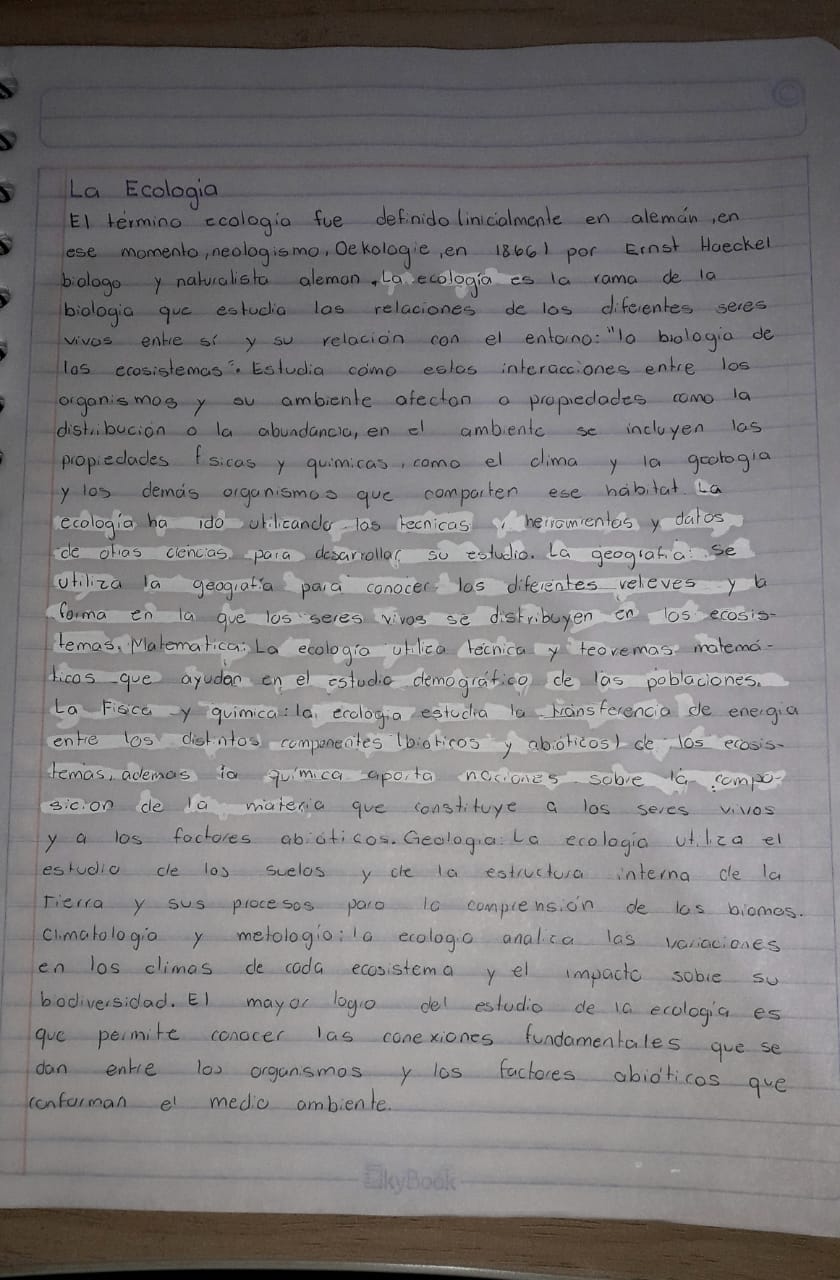 La Ecologia
El término ecología fue definido linicialmente en alemán, en
ese momento, neologismo, Oekologie, en 1866) por Ernst Haeckel
biologo y naturalista aleman. La ecología es la rama de la
biologia que estudia las relaciones de los diferentes seres
vivos entre sí y su relación con el entorno: "la biologia de
los ecosistemas". Estudia cómo estas interacciones entre los
organismos y su ambiente afectan a propiedades como la
distribución o la abundancia, en el ambiente se incluyen las
propiedades fisicas y quimicas, como el clima y la geologia
y los demás organismos que comparten ese hábitat. La
ecología ha ido utilicando las tecnicas, herramientas y datos
de otras ciencias para desarrollar su estudio. La geografía: Se
utiliza la geografía para conocer los diferentes releves y la
forma en la que los seres vivos se distribuyen en los ecosis-
temas. Matematica: La ecología utilica técnica y teoremas matemá-
ticos que ayudan en el estudio demográfico de las poblaciones.
La Fisica y quimica: la ecologia estudia la transferencia de energia
entre los distintos componentes (bioticos y abióticos) de los ecosis-
temas, ademas la química aporta nociones sobre la compo-
sicion de la materia que constituye a los seres vivos
y a los factores abióticos. Geologia: La ecología utiliza el
estudio de los suelos y de la estructura interna de la
Tierra y sus procesos para la comprensión de los biomas.
Climatologia y metologio: la ecologia analica las variaciones
en los climas de cada ecosistema y el impacto sobre su
biodiversidad. El mayor logro del estudio de la ecología es
que permite conocer las conexiones fundamentales que se
dan entre los organismos y los factores abióticos que
conforman el medio ambiente.
SkyBook